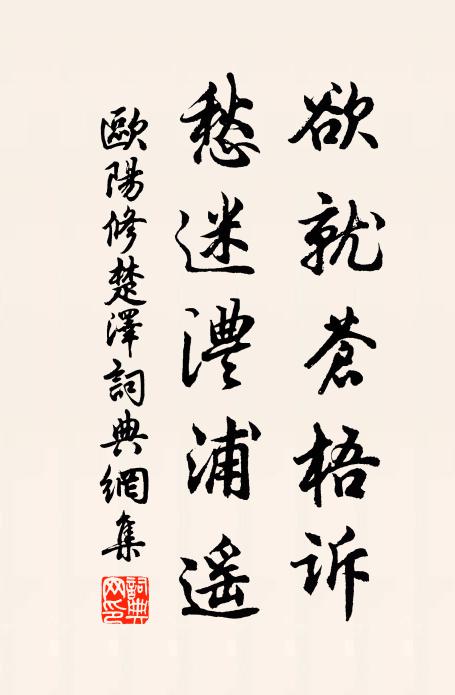 欲就蒼梧訴
愁迷澧浦遥
歐陽修楚澤詞典網集
詞典网印